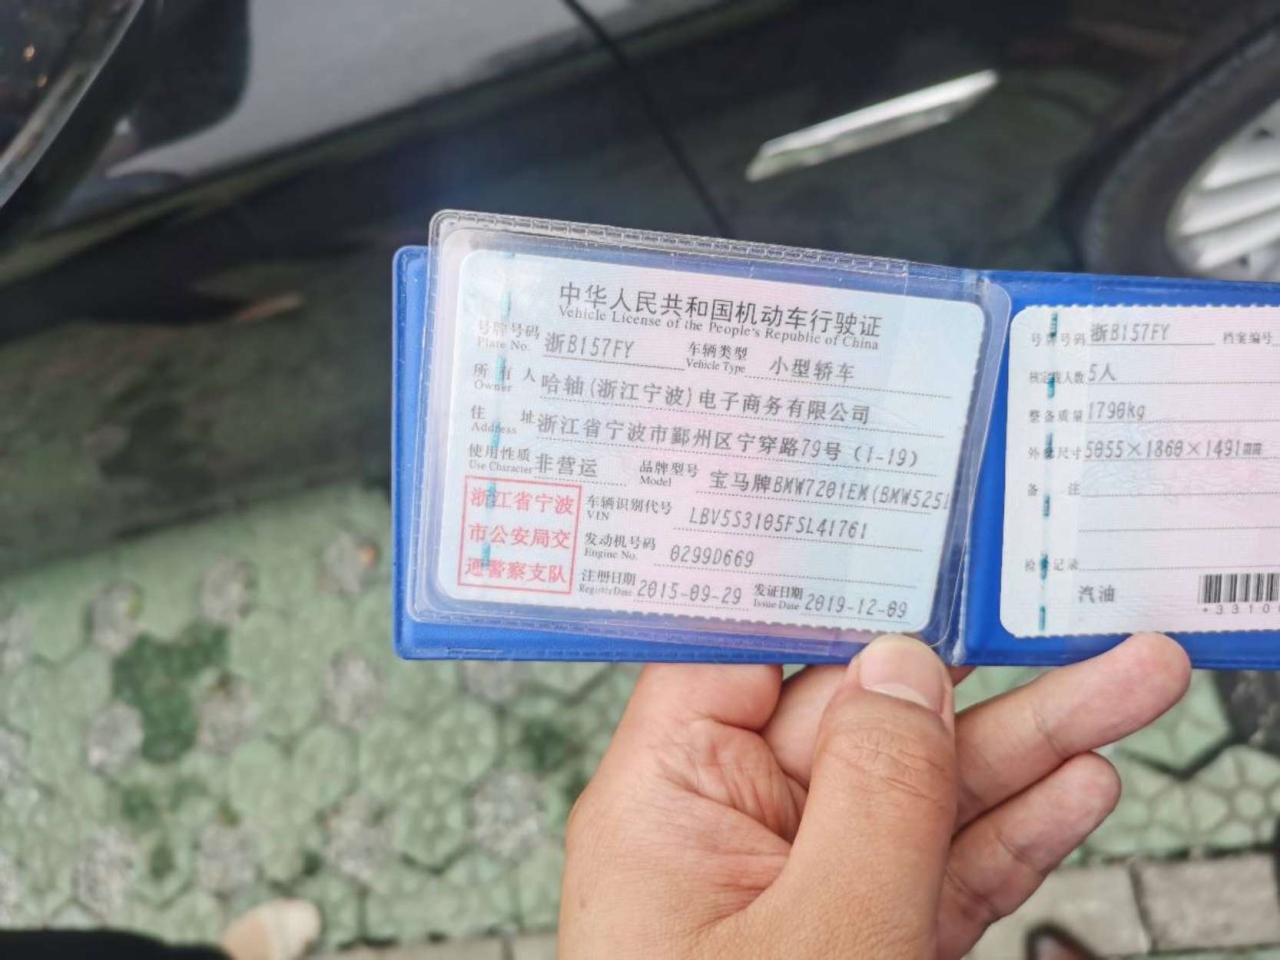 中华人民共和国机动车行驶证
Vehicle License of the People's Republic of China
号牌号码 浙B157FY 车辆类型 小型轿车
Plate No. Vehicle Type
所有人 哈轴(浙江宁波)电子商务有限公司
Owner
住址 浙江省宁波市鄞州区宁穿路79号(1-19)
Address
使用性质 非营运 品牌型号 宝马牌BMW7201EM(BMW525
Use Character Model
浙江省宁波
市公安局交
通警察支队
车辆识别代号 LBV5S3105FSL41761
VIN
发动机号码 0299D669
Engine No.
注册日期 2015-09-29 发证日期 2019-12-09
Register Date Issue Date
号牌号码 浙B157FY 档案编号
核定载人数 5人
整备质量 1790kg
外廓尺寸 5055×1860×1491mm
备注
检验记录
汽油